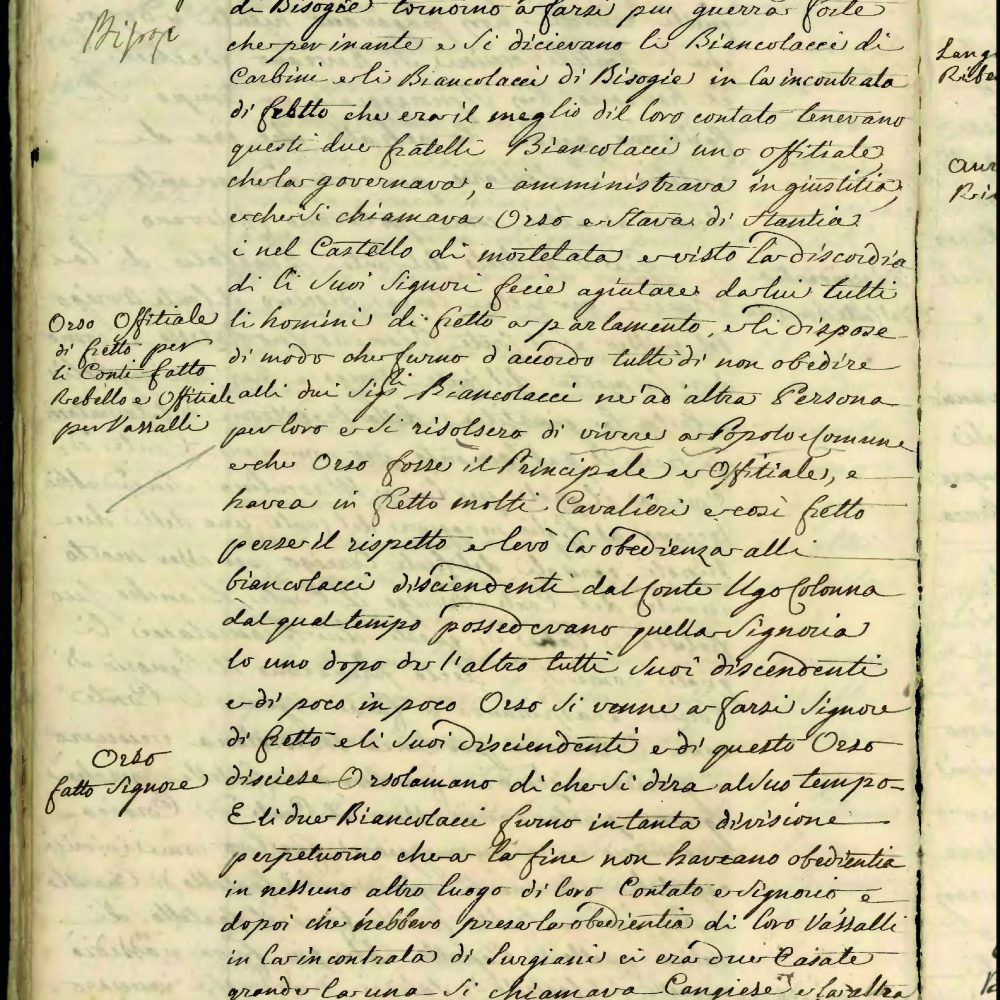 di Bisogie tornorno a farsi piu guerra forte
che per inante e si dicievano li Biancolacci di
Carbini e li Biancolacci di Bisogie in la incontrata
di fretto che era il meglio dil loro contato tenevano
questi due fratelli Biancolacci uno offitiale
che la governava, e amministrava in giustitia,
e che si chiamava Orso e stava di stantia
i nel Castello di mortelata e visto la discordia
di li suoi signori fecie agiutare da lui tutti
li homini di fretto a parlamento, e li dispose
di modo che furno d'accordo tutti di non obedire
alli dui sig.ri Biancolacci ne ad altra Persona
per loro e si risolsero di vivere a Popolo e Comune
e che Orso fosse il Principale e Offitiale, e
havea in fretto molti Cavalieri e così fretto
perse il rispetto e levò la obedienza alli
biancolacci disciendenti dal Conte Ugo Colonna
dal qual tempo possedevano quella signoria
lo uno dopo de l'altro tutti suoi discendenti
e di poco in poco Orso si venne a farsi signore
di fretto e li suoi disciendenti e di questo Orso
disciese Orsolamano di che si dira al suo tempo-
E li due Biancolacci furno in tanta divisione
perpetuorno che a la fine non haveano obedientia
in nessuno altro luogo di loro Contato e signorio e
dopoi che hebbero presa la obedientia di loro Vassalli
in la incontrata di Surgiani ci era due Casate
grande la una si chiamava Cangiese e la altra
Orso Offitiale
di fretto per
li Conti fatto
Rebello e Offitiale
per Vassalli
Orso
fatto signore